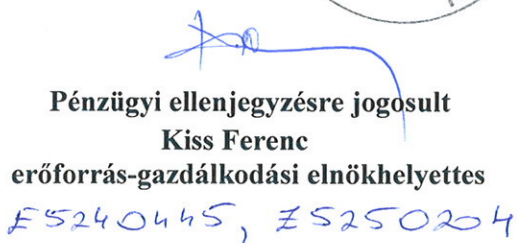 Pénzügyi ellenjegyzésre jogosult
Kiss Ferenc
erőforrás-gazdálkodási elnökhelyettes
E5240445, Z5250204